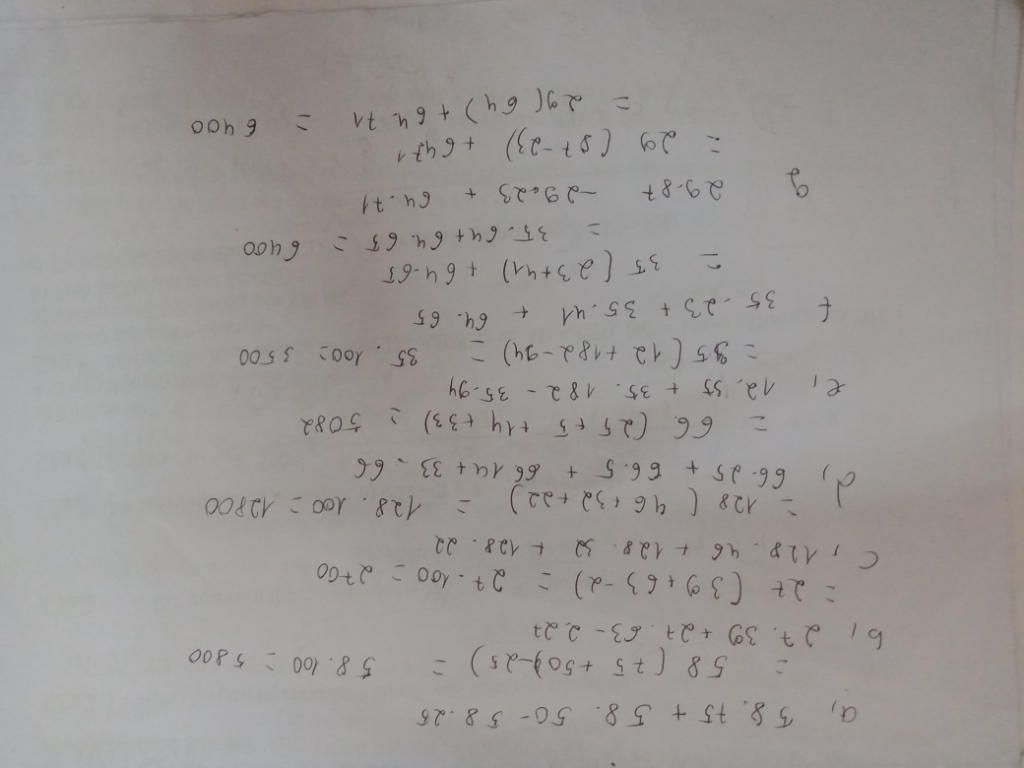 a, 58. 75 + 58. 50 - 58. 25
= 58 (75 + 50 - 25) = 58. 100 = 5800
b, 27. 39 + 27. 63 - 2. 27
= 27 (39 + 63 - 2) = 27. 100 = 2700
c, 128. 46 + 128. 32 + 128. 22
= 128 (46 + 32 + 22) = 128. 100 = 12800
d, 66. 25 + 66. 5 + 66. 14 + 33. 66
= 66 (25 + 5 + 14 + 33) = 5082
e, 12. 35 + 35. 182 - 35. 94
= 35 (12 + 182 - 94) = 35. 100 = 3500
f 35. 23 + 35. 41 + 64. 65
= 35 (23 + 41) + 64. 65
= 35. 64 + 64. 65 = 6400
g 29. 87 - 29. 23 + 64. 71
= 29 (87 - 23) + 6471
= 29 (64) + 64. 71 = 6400